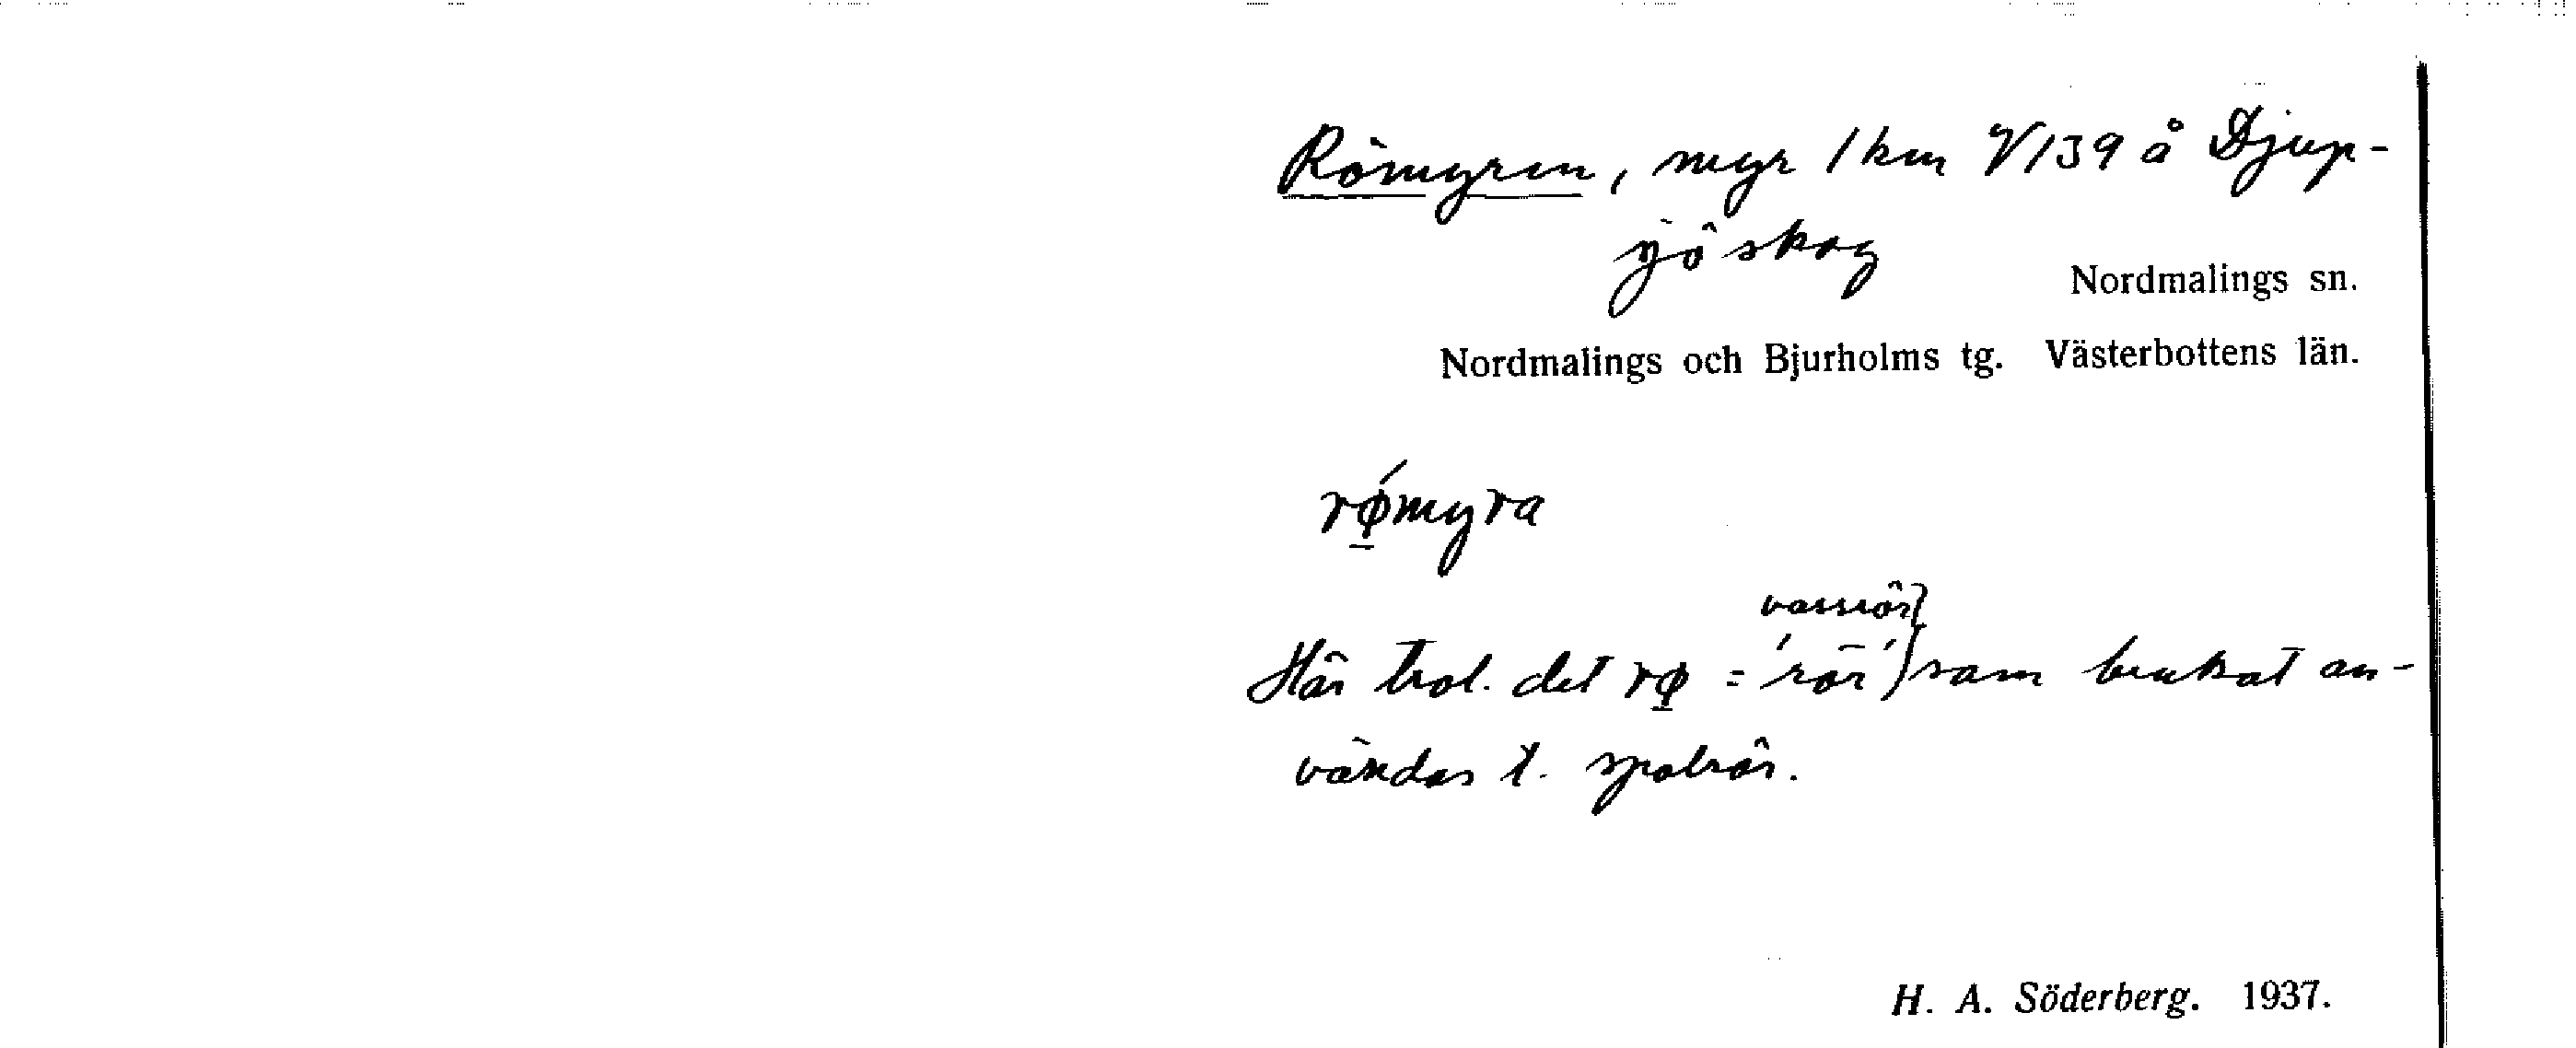 Römyren, myr 1 km V 139 å Djup-
sjö skog
Nordmalings sn.
Nordmalings och Bjurholms tg. Västerbottens län.
rǿ̱myra
vassrör
Här trol. det rø̱ = 'rör' som brukat an-
vändas t. spolrör.
H. A. Söderberg. 1937.